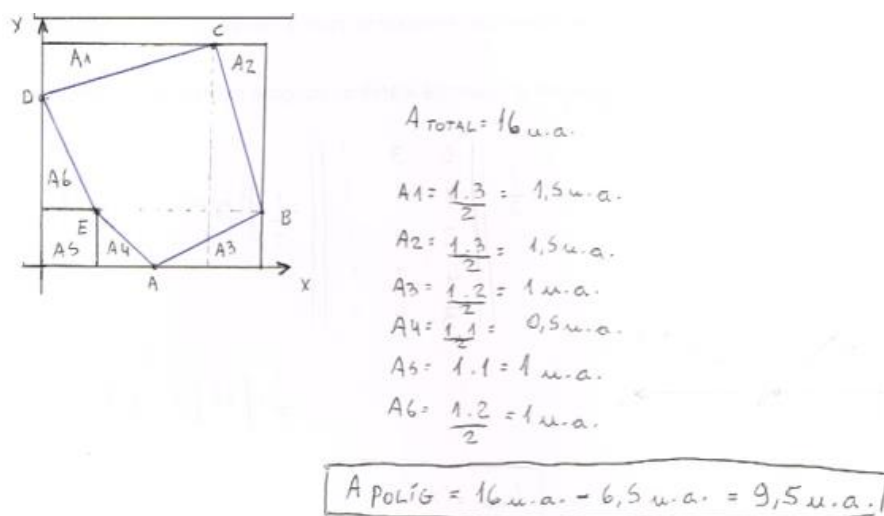 Y
C
A1
A2
D
A6
E
B
A5
A4
A3
A
X
A TOTAL = 16 u.a.
A1 = 1.3/2 = 1,5 u.a.
A2 = 1.3/2 = 1,5 u.a.
A3 = 1.2/2 = 1 u.a.
A4 = 1.1/2 = 0,5 u.a.
A5 = 1.1 = 1 u.a.
A6 = 1.2/2 = 1 u.a.
A POLÍG = 16 u.a. - 6,5 u.a. = 9,5 u.a.